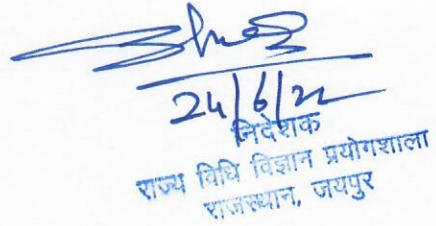 24/6/22
निदेशक
राज्य विधि विज्ञान प्रयोगशाला
राजस्थान, जयपुर